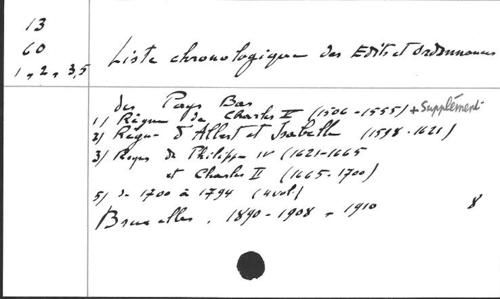 13
60
1, 2, 3, 5
Liste chronologique des Edits et Ordonnances
des Pays Bas
1/ Règne de Charles II (1506-1555) + Supplément
2/ Règne d'Albert et Isabelle (1598-1621)
3/ Règnes de Philippe IV (1621-1665
et Charles II (1665-1700)
5/ de 1700 à 1794 (4 vol)
Bruxelles, 1890-1908 - 1910
8